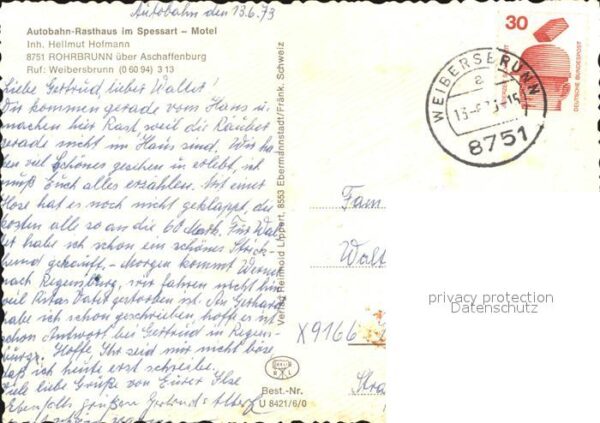 Autobahn den 13.6.73
Autobahn-Rasthaus im Spessart – Motel
Inh. Hellmut Hofmann
8751 ROHRBRUNN über Aschaffenburg
Ruf: Weibersbrunn (0 60 94) 3 13
Liebe Gertrud, lieber Walter!
Wir kommen gerade vom Hans u.
machen hier Rast, weil die Räuber
gerade nicht im Haus sind. Wir ha-
ben viel Schönes gesehen u erlebt, ich
muß Euch alles erzählen. Mit einer
Hose hat es noch nicht geklappt, die
kosten alle so an die 60 Mark. Für Wal-
ter habe ich schon ein schönes Strick-
hemd gekauft. – Morgen kommt Werner
nach Regensburg, wir fahren nicht hin
weil Ritas Vater gestorben ist. An Gerhard
habe ich schon geschrieben hoffe es ist
schon Antwort bei Gertrud in Regens-
burg. Hoffe, Ihr seid mir nicht böse
daß ich heute erst schreibe.
Viele liebe Grüße von Eurer Ilse
Ebenfalls grüßen Gertrud
Verlag Reinhold Lippert, 8553 Ebermannstadt/Fränk. Schweiz
Best.-Nr.
U 8421/6/0
30
DEUTSCHE BUNDESPOST
WEIBERSBRUNN
a
13.-6.73.-15
8751
Fam
Walt
X9166
Stra
privacy protection
Datenschutz